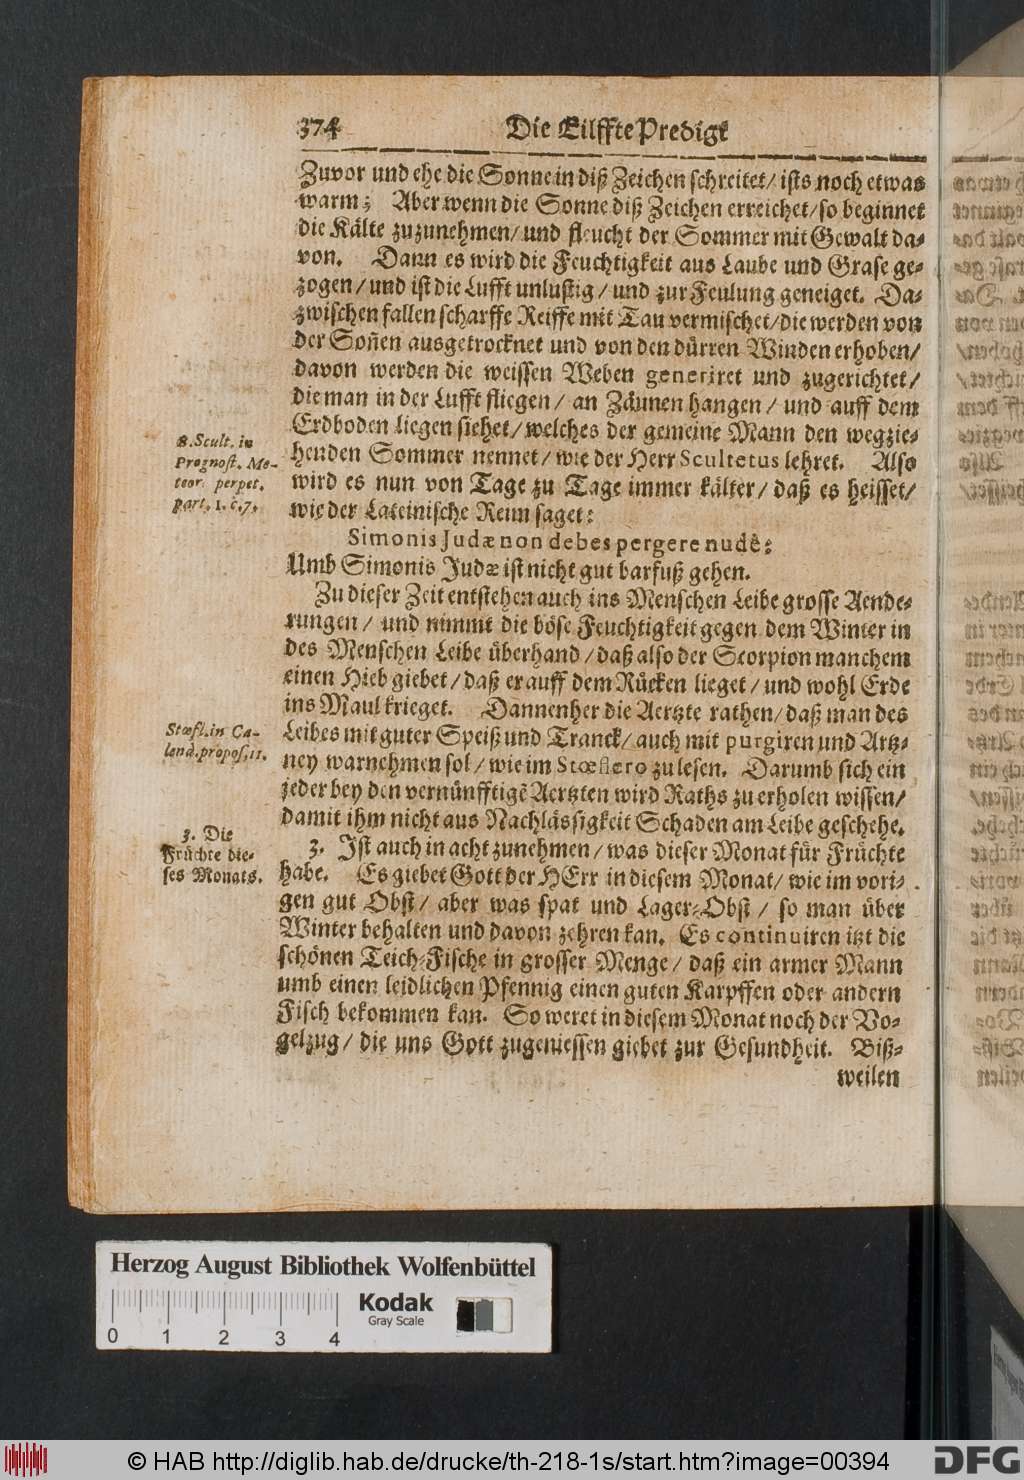 374 Die Eilffte Predigt
Zuvor und ehe die Sonne in diß Zeichen schreitet/ ists noch etwas
warm; Aber wenn die Sonne diß Zeichen erreichet/ so beginnet
die Kälte zuzunehmen/ und fleucht der Sommer mit Gewalt da-
von. Dann es wird die Feuchtigkeit aus Laube und Grase ge-
zogen/ und ist die Lufft unlustig/ und zur Feulung geneiget. Da-
zwischen fallen scharffe Reiffe mit Tau vermischet/ die werden von
der Soñen ausgetrocknet und von den dürren Winden erhoben/
davon werden die weissen Weben generiret und zugerichtet/
die man in der Lufft fliegen/ an Zäunen hangen/ und auff dem
Erdboden liegen siehet/ welches der gemeine Mann den wegzie-
henden Sommer nennet/ wie der Herr Scultetus lehret. Also
wird es nun von Tage zu Tage immer kälter/ daß es heisset/
wie der Lateinische Reim saget:
Simonis Judæ non debes pergere nudè:
Umb Simonis Judæ ist nicht gut barfuß gehen.
Zu dieser Zeit entstehen auch ins Menschen Leibe grosse Aende-
rungen/ und nimmt die böse Feuchtigkeit gegen dem Winter in
des Menschen Leibe überhand/ daß also der Scorpion manchem
einen Hieb giebet/ daß er auff dem Rücken lieget/ und wohl Erde
ins Maul krieget. Dannenher die Aertzte rathen/ daß man des
Leibes mit guter Speiß und Tranck/ auch mit purgiren und Artz-
ney warnehmen sol/ wie im Stœflero zu lesen. Darumb sich ein
jeder bey den vernünfftigẽ Aertzten wird Raths zu erholen wissen/
damit ihm nicht aus Nachlässigkeit Schaden am Leibe geschehe.
3. Ist auch in acht zunehmen/ was dieser Monat für Früchte
habe. Es giebet Gott der HErr in diesem Monat/ wie im vori-
gen gut Obst/ aber was spat und Lager-Obst/ so man über
Winter behalten und davon zehren kan. Es continuiren itzt die
schönen Teich-Fische in grosser Menge/ daß ein armer Mann
umb einen leidlichen Pfennig einen guten Karpffen oder andern
Fisch bekommen kan. So weret in diesem Monat noch der Vo-
gelzug/ die uns Gott zugeniessen giebet zur Gesundheit. Biß-
weilen
8. Scult. in
Prognost. Me-
teor. perpet.
part. 1. c. 7.
Stœfl. in Ca-
lend. propos. 11.
3. Die
Früchte die-
ses Monats.
Herzog August Bibliothek Wolfenbüttel
0 1 2 3 4
Kodak
Gray Scale
© HAB http://diglib.hab.de/drucke/th-218-1s/start.htm?image=00394
DFG